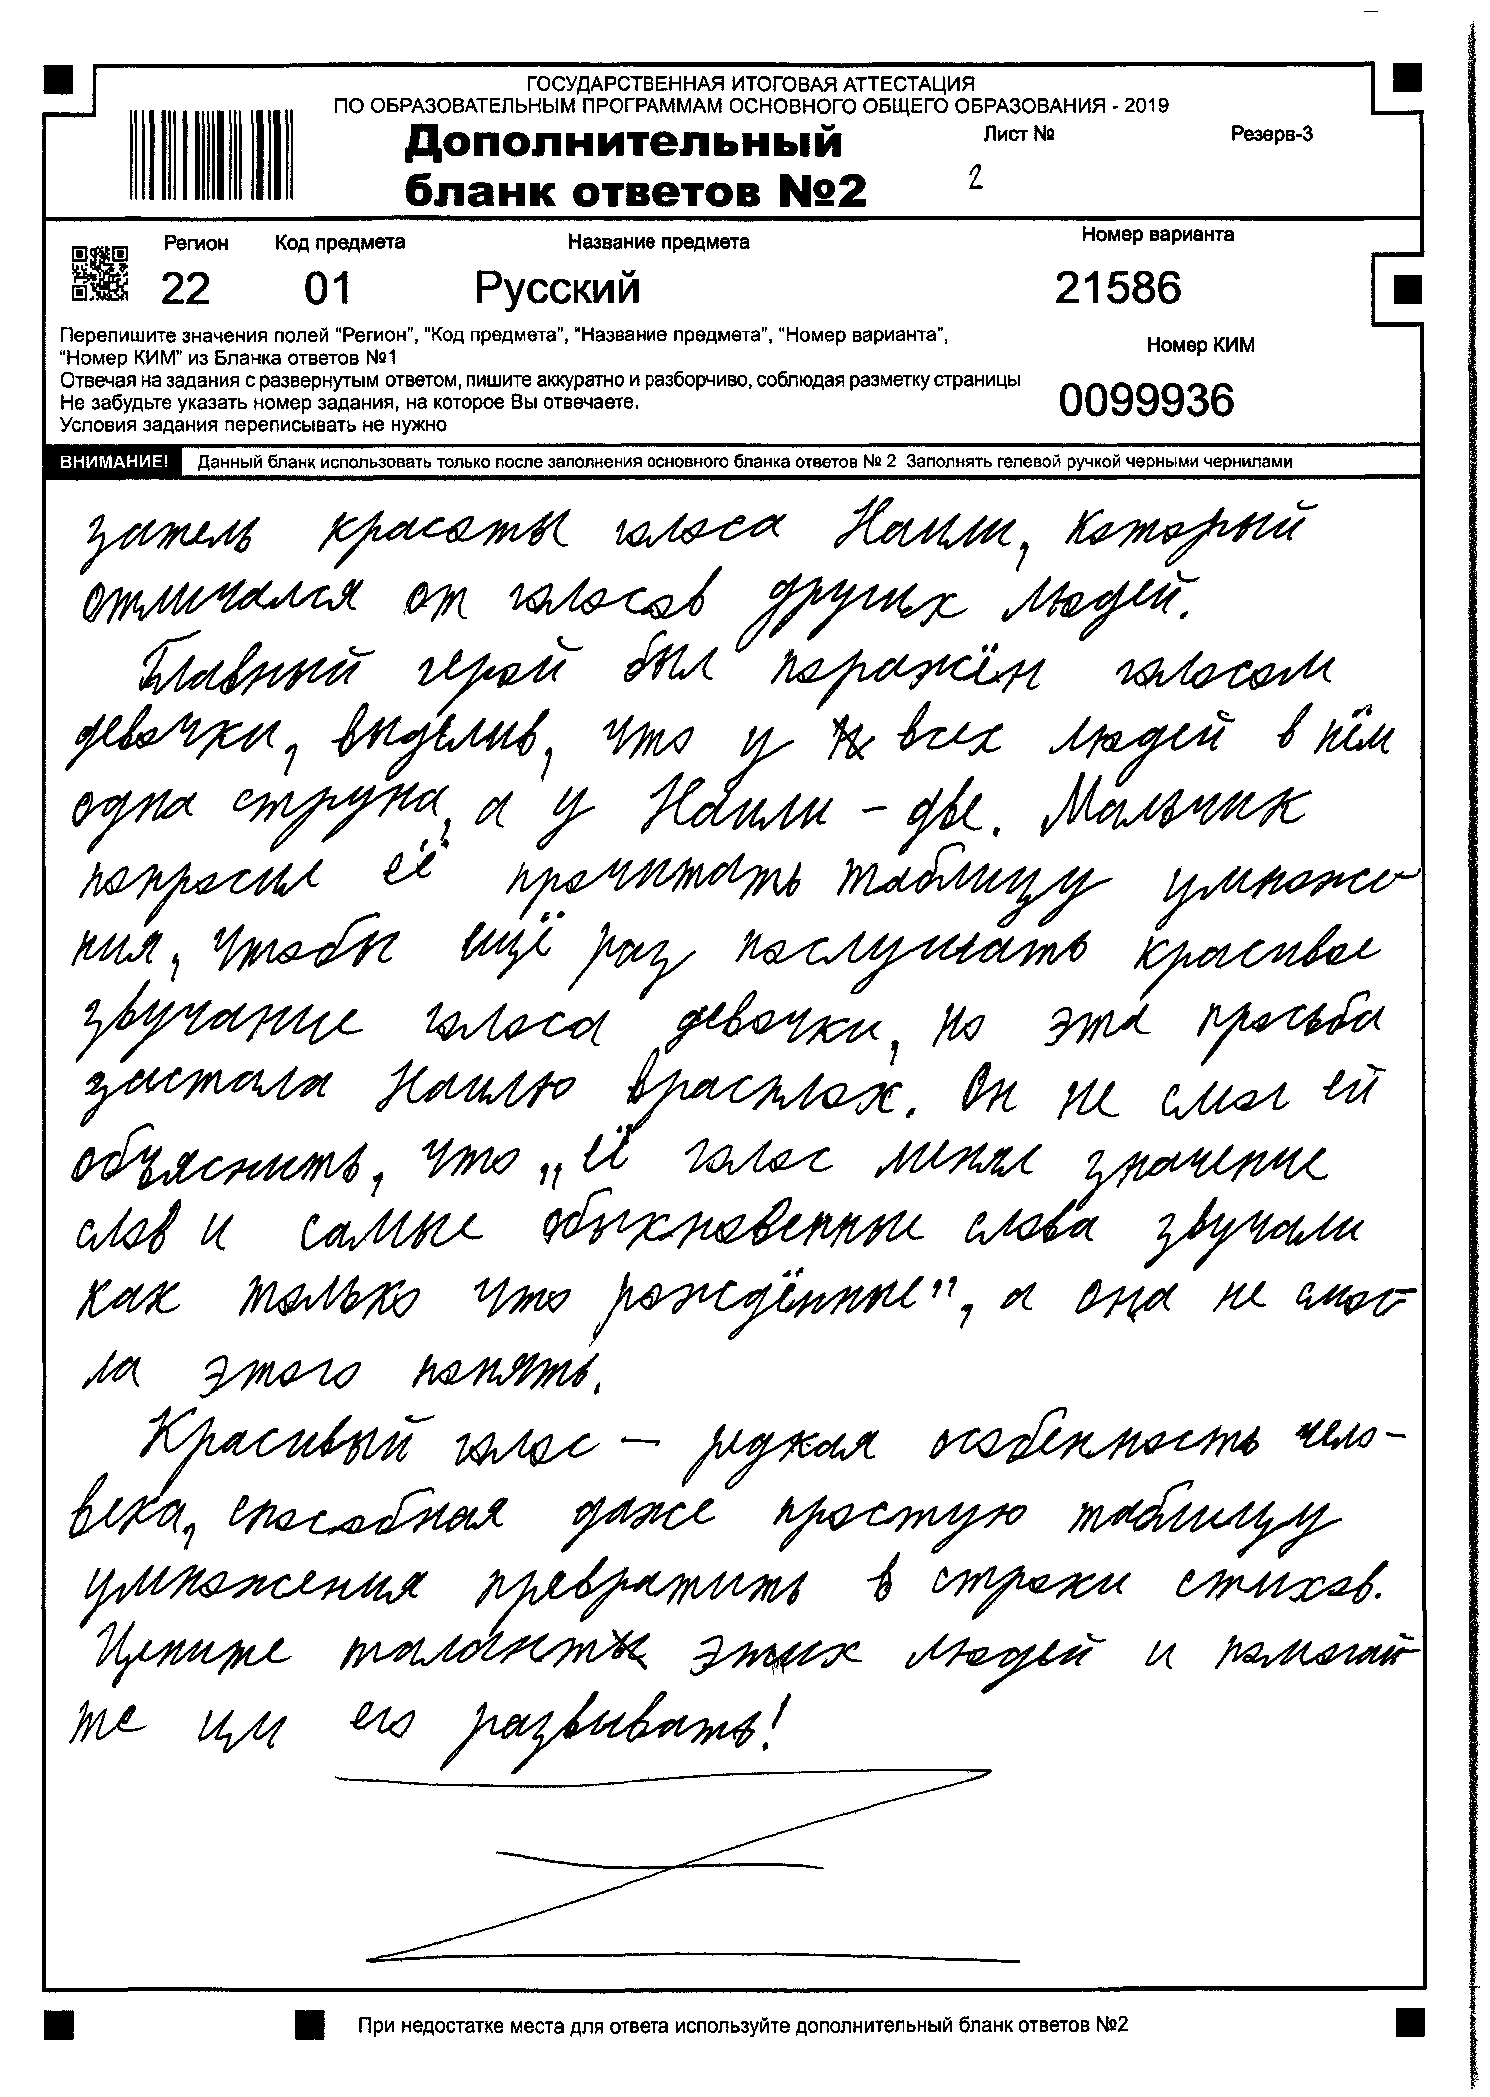 ГОСУДАРСТВЕННАЯ ИТОГОВАЯ АТТЕСТАЦИЯ
ПО ОБРАЗОВАТЕЛЬНЫМ ПРОГРАММАМ ОСНОВНОГО ОБЩЕГО ОБРАЗОВАНИЯ - 2019
Дополнительный
бланк ответов №2
Лист №
2
Резерв-3
Регион
22
Код предмета
01
Название предмета
Русский
Номер варианта
21586
Перепишите значения полей "Регион", "Код предмета", "Название предмета", "Номер варианта",
"Номер КИМ" из Бланка ответов №1
Отвечая на задания с развернутым ответом, пишите аккуратно и разборчиво, соблюдая разметку страницы
Не забудьте указать номер задания, на которое Вы отвечаете.
Условия задания переписывать не нужно
Номер КИМ
0099936
ВНИМАНИЕ! Данный бланк использовать только после заполнения основного бланка ответов № 2 Заполнять гелевой ручкой черными чернилами
затель красоты голоса Наили, который
отличался от голосов других людей.
Главный герой был поражён голосом
девочки, выделив, что у всех людей в нём
одна струна, а у Наили – две. Мальчик
попросил её прочитать таблицу умноже-
ния, чтобы ещё раз послушать красивое
звучание голоса девочки, но эта просьба
застала Наилю врасплох. Он не смог ей
объяснить, что „её голос менял значение
слов и самые обыкновенные слова звучали
как только что рождённые”, а она не смог-
ла этого понять.
Красивый голос – редкая особенность чело-
века, способная даже простую таблицу
умножения превратить в строки стихов.
Цените талант этих людей и помогай-
те им его развивать!
При недостатке места для ответа используйте дополнительный бланк ответов №2